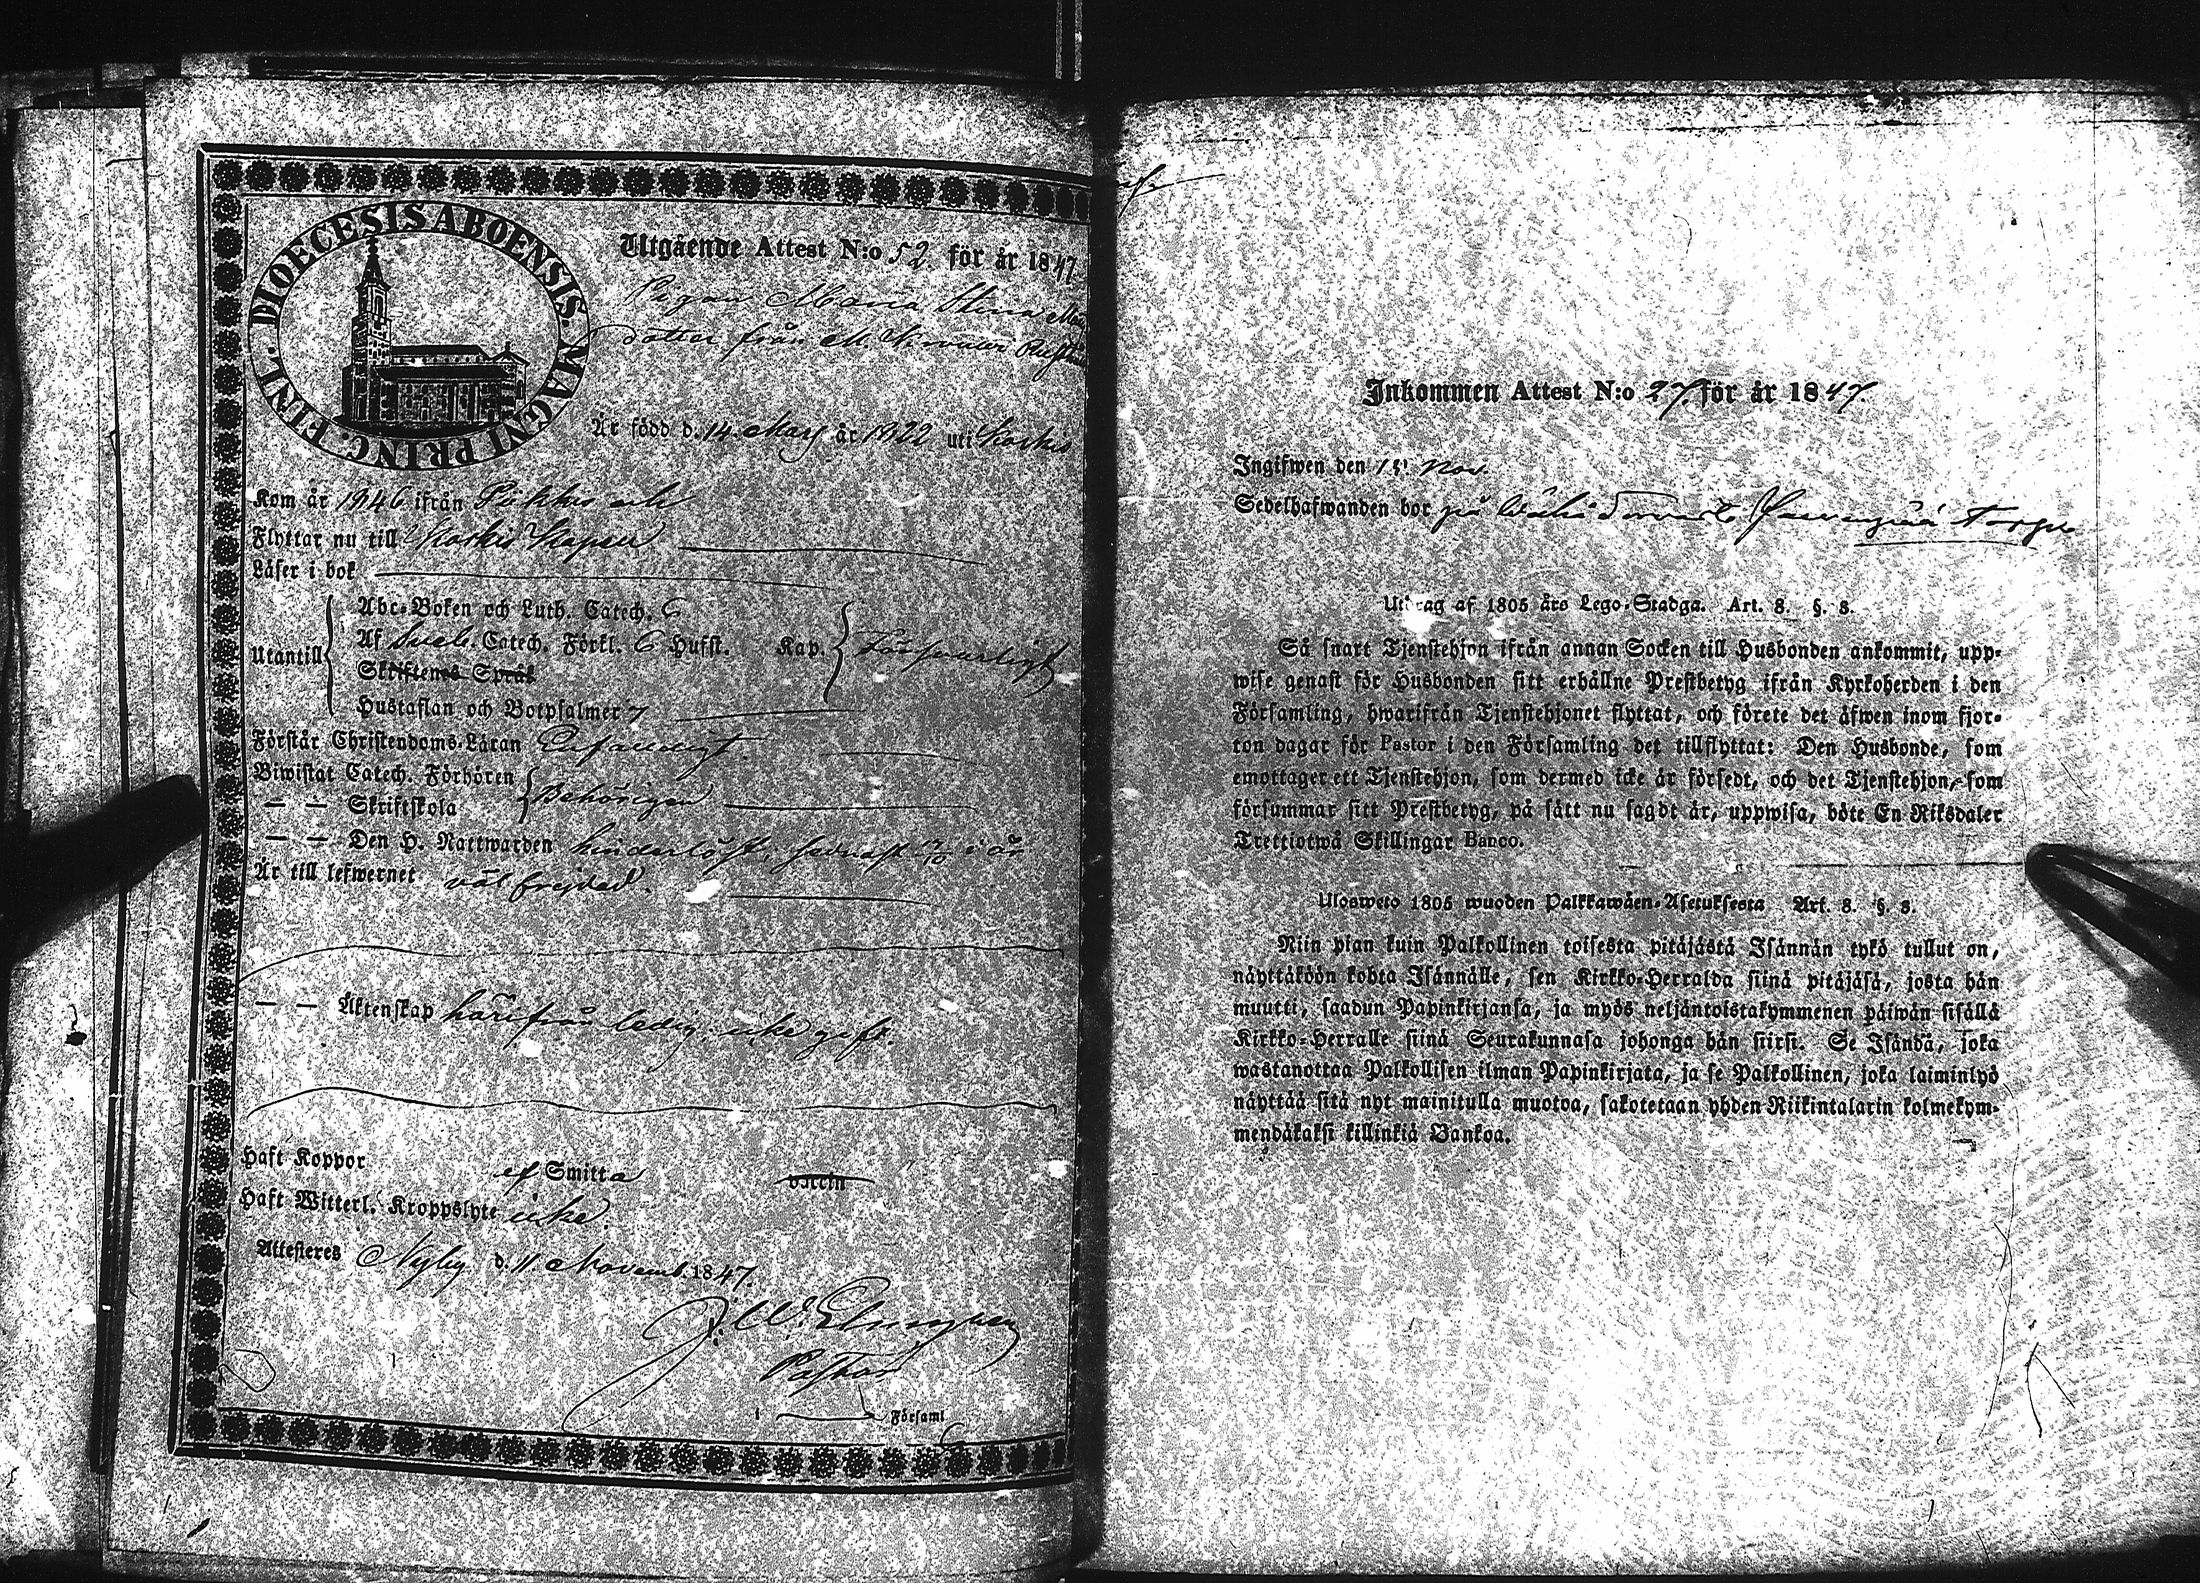 DIOECESIS ABOENSIS. MAGNI PRINC. FINL.
Utgående Attest N:o 52 för år 1847.
Pigan Maria Stina
dotter från M.
Är född d. 14. Mars år 1822 uti Koskis
Kom år 1846 ifrån Pikkis och
Flyttar nu till Koskis Kapell
Läser i bok
Abc-Boken och Luth. Catech. 6
Utantill Af Sveb. Catech. Förkl. 6 Hufst. Kap. Försvarligt
Skriftenes Språk
Hustaflan och Botpsalmer 7
Förstår Christendoms-Läran Enfaldigt
Biwistat Catech. Förhören
— — Skriftskola Behörigen
— — Den H. Nattwarden hinderlöst, senast i år
Är till lefwernet väl frejdad.
— — Äktenskap härifrån ledig: icke gift.
Haft Koppor ef Smitta
Haft Witterl. Kroppslyte icke.
Attesteres Nyby d. 11. Novemb. 1847.
J. W.
Pastor
i Församl
Inkommen Attest N:o 27. för år 1847.
Ingifwen den 15 Nov.
Sedelhafwanden bor på
Utdrag af 1805 års Lego-Stadga. Art. 8. §. 8.
Så snart Tjenstehjon ifrån annan Socken till Husbonden ankommit, upp-
wise genast för Husbonden sitt erhållne Prestbetyg ifrån Kyrkoherden i den
Församling, hwarifrån Tjenstehjonet flyttat, och förete det äfwen inom fjor-
ton dagar för Pastor i den Församling det tillflyttat: Den Husbonde, som
emottager ett Tjenstehjon, som dermed icke är försedt, och det Tjenstehjon, som
försummar sitt Prestbetyg, på sätt nu sagdt är, uppwisa, böte En Riksdaler
Trettiotwå Skillingar Banco.
Ulosweto 1805 wuoden Palkkawäen-Asetuksesta Art. 8. §. 8.
Niin pian kuin Palkollinen toisesta pitäjästä Isännän tykö tullut on,
näyttäköön kohta Isännälle, sen Kirkko-Herralda siinä pitäjäsä, josta hän
muutti, saadun Papinkirjansa, ja myös neljäntoistakymmenen päiwän sisällä
Kirkko-Herralle siinä Seurakunnasa johonga hän siirsi. Se Isändä, joka
wastanottaa Palkollisen ilman Papinkirjata, ja se Palkollinen, joka laiminlyö
näyttää sitä nyt mainitulla muotoa, sakotetaan yhden Riikintalarin kolmekym-
mendäkaksi killinkiä Bankoa.